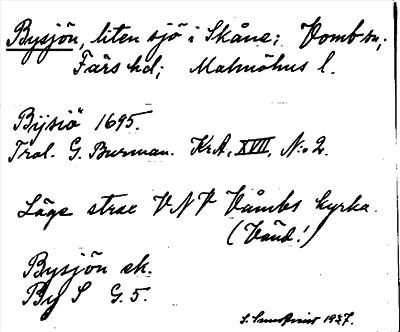 Bysjön, liten sjö i Skåne; Vomb sn,
Färs hd; Malmöhus l.
Bÿsiö 1695.
Trol. G. Burman. KrA, XVII, N:o 2.
Läge strax VNV Våmbs kyrka.
(Vänd!)
Bysjön ek.
By S G. 5.
1927.